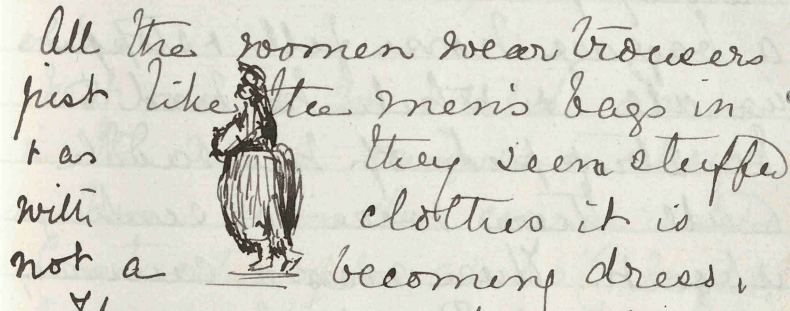 All the women wear trousers
just like the men's bags in
+ as they seem stuffed
with clothes it is
not a becoming dress.